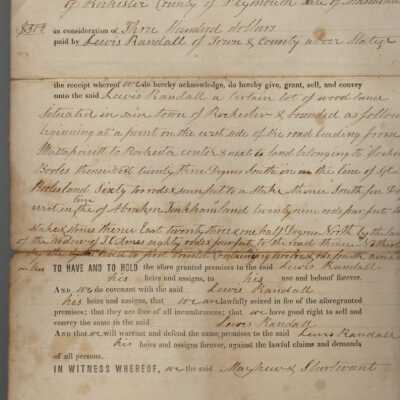 of Rochester County of Plymouth State of
$300 in consideration of Three Hundred dollars
paid by Lewis Randall of Town & County above
the receipt whereof we do hereby acknowledge, do hereby give, grant, sell, and convey
unto the said Lewis Randall a certain lot of wood land
situated in said town of Rochester & bounded as follows
beginning at a point on the west side of the road leading from
Mattapoisett to Rochester center & next to land belonging to
thence twenty three Degrees South in the line of
land sixty two rods & four feet to a Stake thence South
west in the line of Abraham land twenty nine rods four feet to
Stake & stones thence East twenty three & one half Degrees North by the land
of the widow of eighty rods four feet to the road thence
by the road to first containing
TO HAVE AND TO HOLD the afore granted premises to the said Lewis Randall
his heirs and assigns, to his use and behoof forever.
AND we do covenant with the said Lewis Randall
his heirs and assigns, that we are lawfully seized in fee of the aforegranted
premises; that they are free of all incumbrances; that we have good right to sell and
convey the same to the said Lewis Randall
And that we will warrant and defend the same premises to the said Lewis Randall
his heirs and assigns forever, against the lawful claims and demands
of all persons.
IN WITNESS WHEREOF, we the said Mayhew & Sturtevant